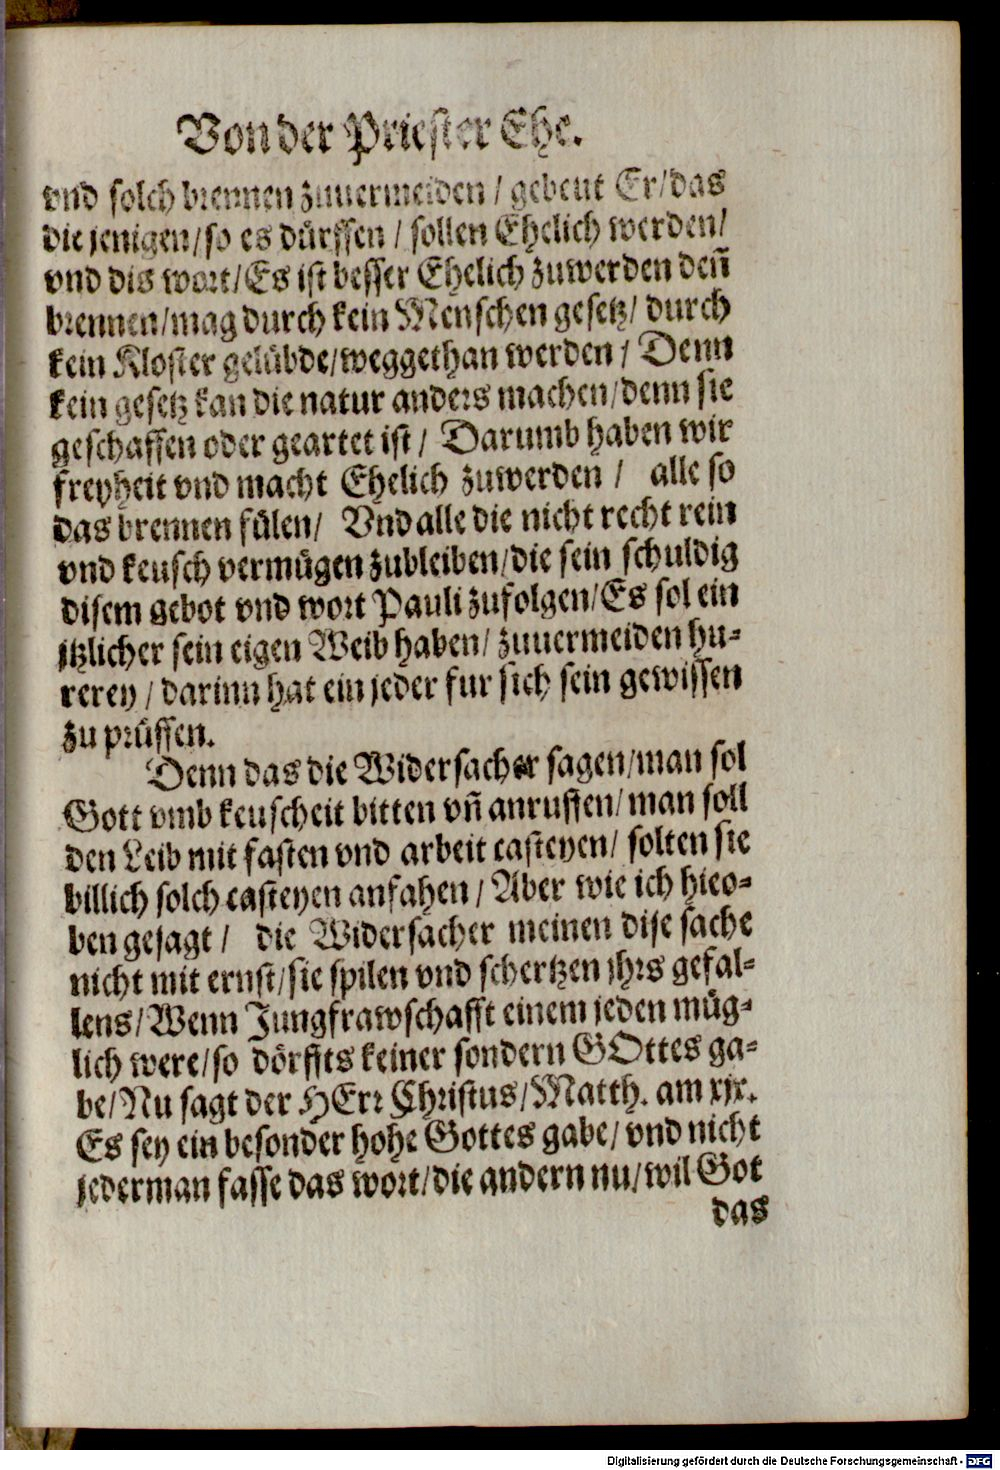 Von der Priester Ehe.
vnd solch brennen zuuermeiden / gebeut Er/das
die jenigen/so es dürffen / sollen Ehelich werden/
vnd dis wort/Es ist besser Ehelich zuwerden deñ
brennen/mag durch kein Menschen gesetz/ durch
kein Kloster gelübde/weggethan werden / Denn
kein gesetz kan die natur anders machen/denn sie
geschaffen oder geartet ist / Darumb haben wir
freyheit vnd macht Ehelich zuwerden / alle so
das brennen fülen/ Vnd alle die nicht recht rein
vnd keusch vermügen zubleiben/die sein schuldig
disem gebot vnd wort Pauli zufolgen/Es sol ein
jtzlicher sein eigen Weib haben/ zuuermeiden hu-
rerey / darinn hat ein jeder fur sich sein gewissen
zu prüffen.
Denn das die Widersacher sagen/man sol
Gott vmb keuscheit bitten vñ anruffen/man soll
den Leib mit fasten vnd arbeit casteyen/ solten sie
billich solch casteyen anfahen / Aber wie ich hieo-
ben gesagt / die Widersacher meinen dise sache
nicht mit ernst/sie spilen vnd schertzen jhrs gefal-
lens/Wenn Jungfrawschafft einem jeden müg-
lich were/so dörffts keiner sondern GOttes ga-
be/Nu sagt der HErr Christus/Matth. am xix.
Es sey ein besonder hohe Gottes gabe/ vnd nicht
jederman fasse das wort/die andern nu/wil Got
das
Digitalisierung gefördert durch die Deutsche Forschungsgemeinschaft - DFG